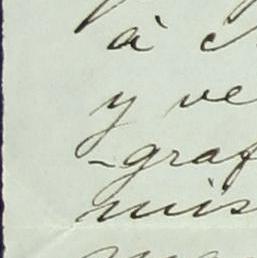 à
y ve
-graf
mis